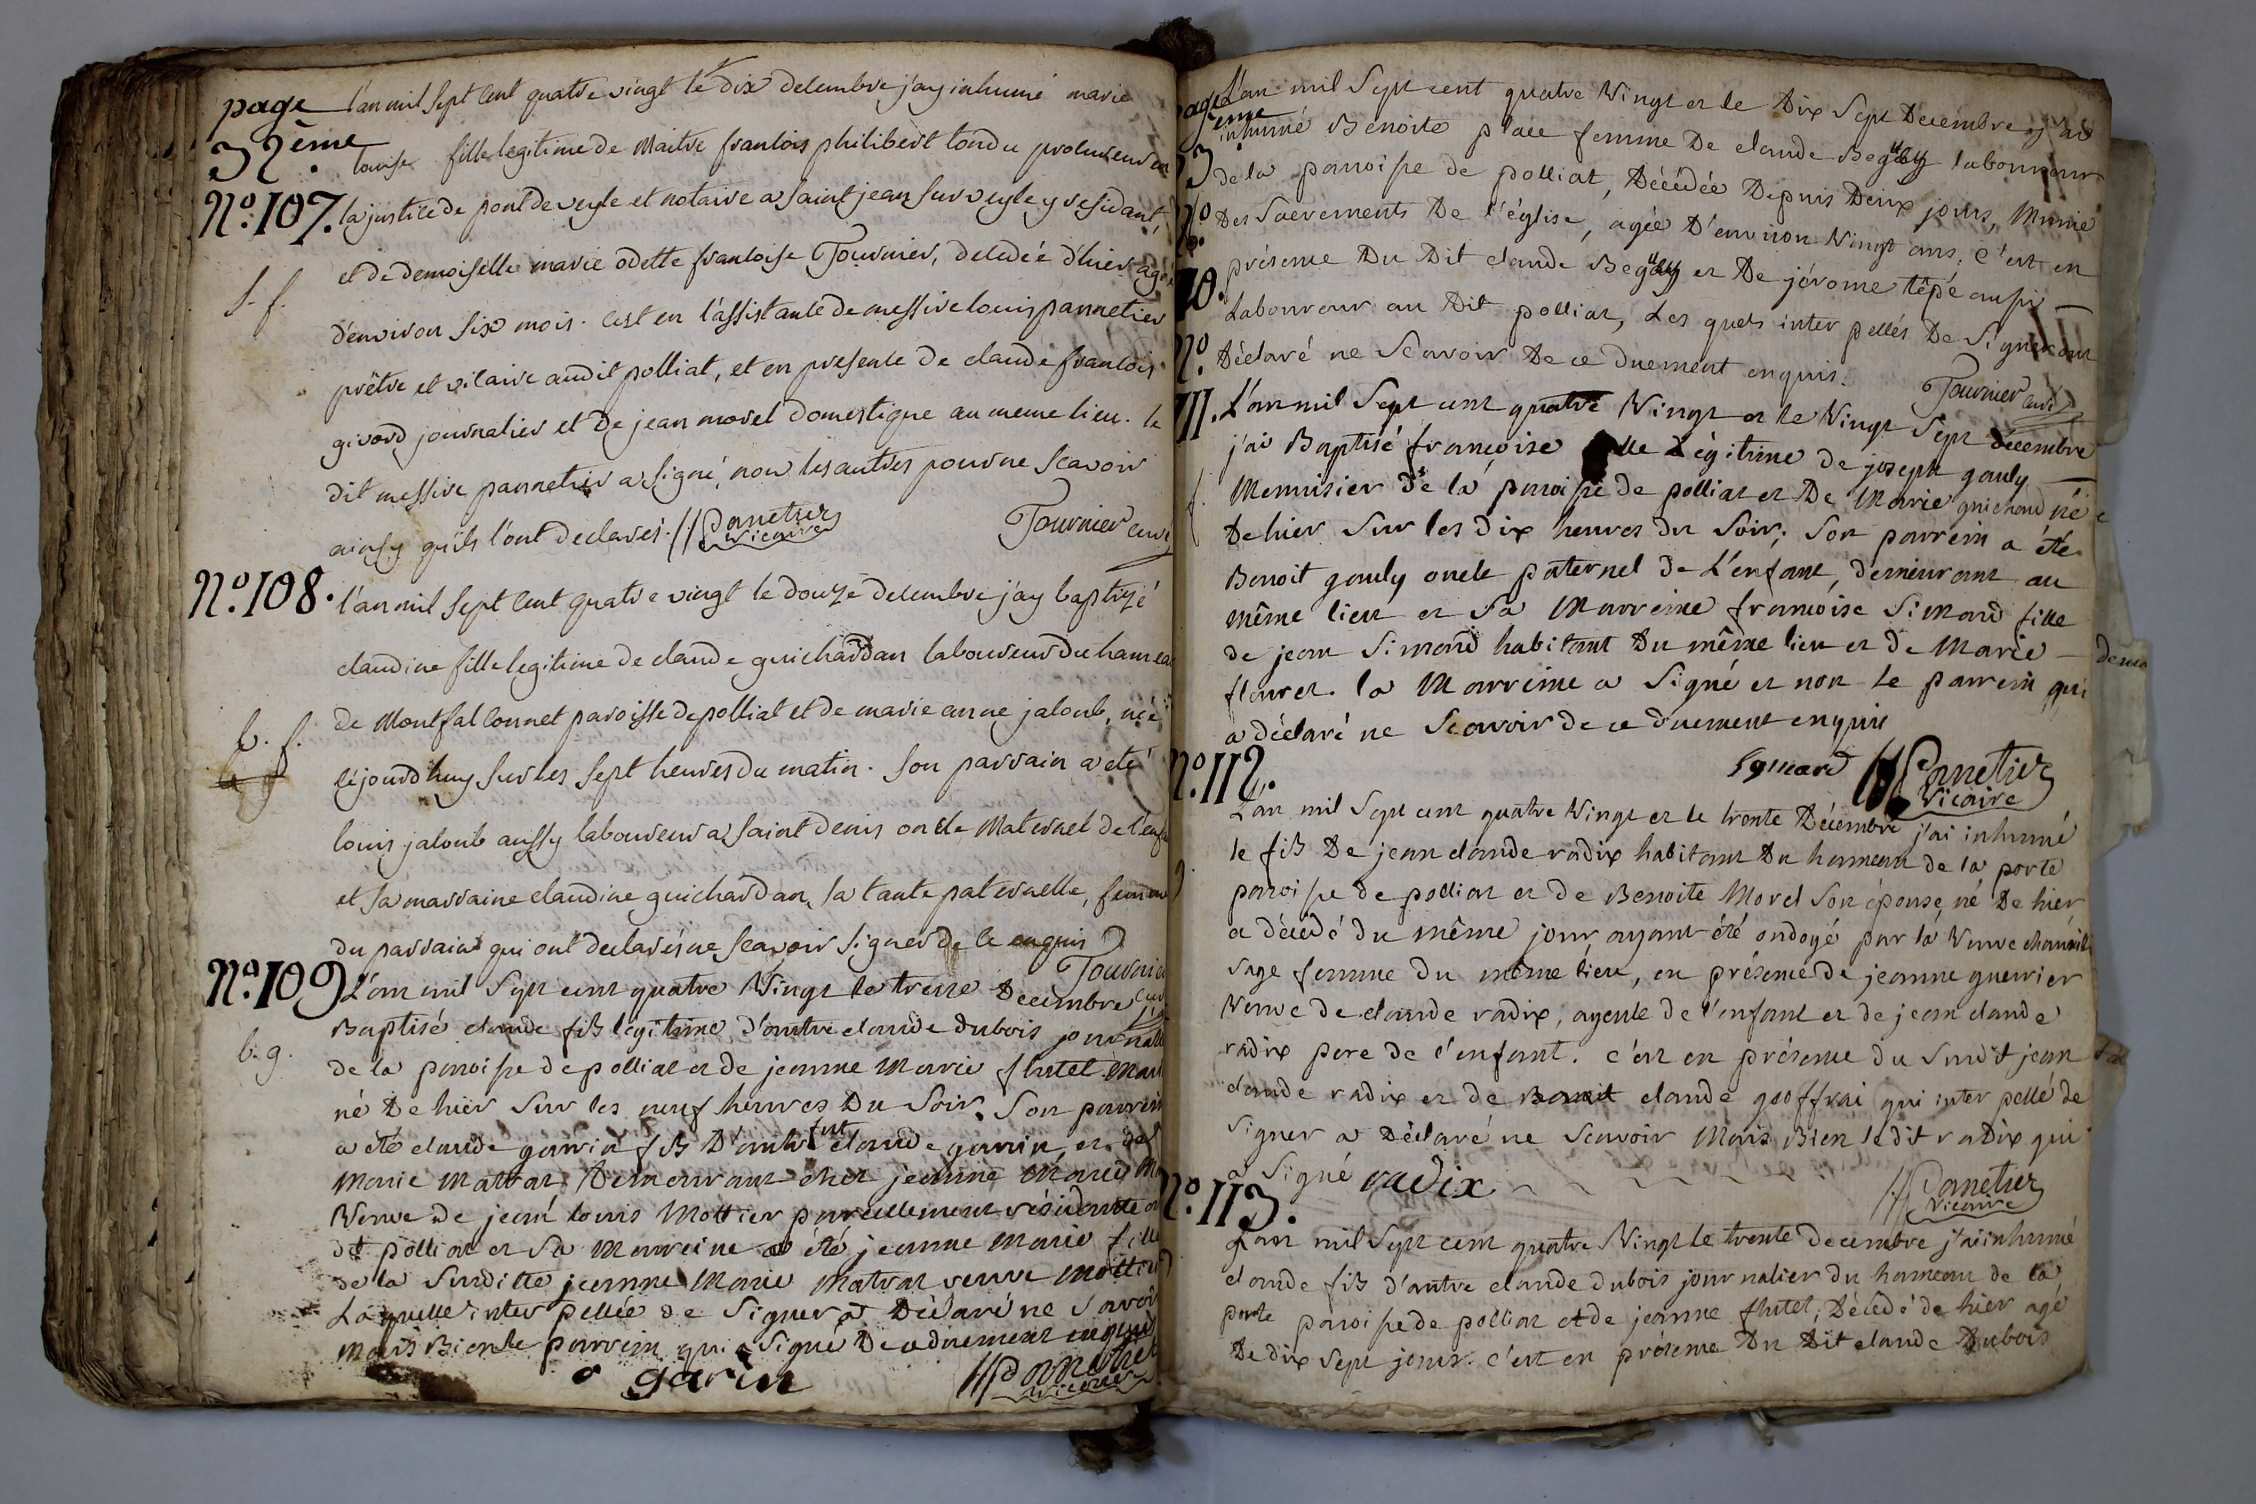 page
32ème
l'an mil sept cent quatre vingt le dix decembre j'ay inhumé marie
louise fille legitime de Maitre francois philibert tondu procureur en
No. 107. la justice de pont de veyle et notaire a saint jean sur veyle y residant,
et de demoiselle marie odette francoise Tournier, decedée d'hier agée
S. f.
d'environ six mois. c'est en l'assistance de messire louis pannetier
prêtre et vicaire audit polliat, et en presence de claude francois
girord journalier et de jean morel domestique au meme lieu. le
dit messire pannetier a signé, non les autres pour ne scavoir
ainsy qu'ils l'ont declarés. Panetier Vicaire Tournier curé
No. 108. l'an mil sept cent quatre vingt le douze decembre j'ay baptizé
claudine fille legitime de claude guichardan laboureur du hameau
de Montfalconnet paroisse de polliat et de marie anne jaloub, née
b. f.
cejourd'huy sur les sept heures du matin. son parrain a eté
louis jaloub aussy laboureur a saint denis oncle Maternel de l'enf
et sa marraine claudine guichardan, sa tante paternelle, femme
du parrain qui ont declarés ne scavoir signer de ce enquis
Tournier curé
No. 109 L'an mil Sept cent quatre Vingt le treize Decembre j'ai
Baptisé claude fils légitime d'autre claude dubois journalie
b. g.
de la paroisse de polliat et de jeanne Marie flutet Mari
né De hier Sur les neuf heures Du Soir. Son parrein
a été claude garrin fils D'autre fut claude garrin, et de
Marie Matrat Demeurant chez jeanne Marie M
Veuve de jean louis Mottier pareillement résidante au
dit polliat et Sa Marreine a été jeanne Marie fille
de la Susditte jeanne Marie Matrat veuve Mottier
Laquelle interpellée de Signer a Déclaré ne Savoir
Mais Bien le parrein qui a Signé De ce duement enquis
garin Pannetier Vicaire
page
eme
33
L'an mil Sept cent quatre Vingt et le Dix Sept Decembre j'ai
inhumé Benoite place femme De claude Beguy laboureur
de la paroisse de polliat, Décédée Depuis Deux jours, Munie
No. 110.
Des Sacrements De l'église, agée D'environ Vingt ans, c'est en
présence Du Dit claude Beguy et De jérome têpé aussi
Laboureur au Dit polliat, Les quels inter pellés De Signer ont
Déclaré ne Scavoir De ce duement enquis. Tournier curé
No. 111. L'an mil Sept cent quatre Vingt et le Vingt Sept décembre
j'ai Baptisé françoise fille Légitime de joseph gauly
f.
Menuisier de la paroisse de polliat et De Marie guichond née
De hier Sur les dix heures du Soir; Son parrein a été
Benoit gauly oncle paternel De L'enfant, demeurant au
même lieu et Sa Marreine francoise Simond fille
de jean Simond habitant Du même lieu et De Marie
flouret. la Marreine a Signé et non le parrein qui
a déclaré ne Scavoir de ce duement enquis
Symard Panetier Vicaire
No. 112.
L'an mil Sept cent quatre Vingt et le trente Décembre j'ai inhumé
le fils De jean claude radix habitant Du hameau de la porte
paroisse de polliat et de Benoite Morel Son épouse, né De hier
a décédé du même jour ayant été ondoyé par la Veuve
sage femme du même lieu, en présence de jeanne guerrier
Veuve de claude radix, ayeule de l'enfant et de jean claude
radix pere de l'enfant. c'est en présence du Susdit jean
claude radix et de Benoit claude goffrai qui inter pellé de
Signer a Déclaré ne Scavoir Mais Bien ledit radix qui
a Signé radix Panetier Vicaire
No. 113.
L'an mil Sept cent quatre Vingt le trente decembre j'ai inhumé
claude fils d'autre claude dubois journalier du hameau de la
porte paroisse de polliat et de jeanne flutet, Décédé de hier agé
De dix Sept jours. c'est en présence Du Dit claude Dubois